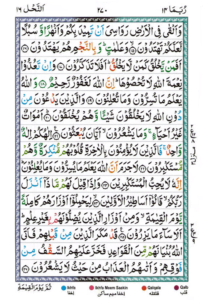 رُبَمَا ١٤
٢٤٠
اَلنَّحْل ١٦
وَاَلْقٰى فِى الْاَرْضِ رَوَاسِىَ اَنْ تَمِيْدَ بِكُمْ وَاَنْهٰرًا وَّسُبُلًا
لَّعَلَّكُمْ تَهْتَدُوْنَ ۝١٥ وَعَلٰمٰتٍ ؕ وَبِالنَّجْمِ هُمْ يَهْتَدُوْنَ ۝١٦
اَفَمَنْ يَّخْلُقُ كَمَنْ لَّا يَخْلُقُ ؕ اَفَلَا تَذَكَّرُوْنَ ۝١٧ وَاِنْ تَعُدُّوْا
نِعْمَةَ اللّٰهِ لَا تُحْصُوْهَا ؕ اِنَّ اللّٰهَ لَغَفُوْرٌ رَّحِيْمٌ ۝١٨ وَاللّٰهُ
يَعْلَمُ مَا تُسِرُّوْنَ وَمَا تُعْلِنُوْنَ ۝١٩ وَالَّذِيْنَ يَدْعُوْنَ مِنْ
دُوْنِ اللّٰهِ لَا يَخْلُقُوْنَ شَيْـًٔا وَّهُمْ يُخْلَقُوْنَ ؕ۝٢٠ اَمْوَاتٌ
غَيْرُ اَحْيَآءٍ ۚ وَمَا يَشْعُرُوْنَ ۙ اَيَّانَ يُبْعَثُوْنَ ۝٢١ اِلٰهُكُمْ اِلٰهٌ
وَّاحِدٌ ۚ فَالَّذِيْنَ لَا يُؤْمِنُوْنَ بِالْاٰخِرَةِ قُلُوْبُهُمْ مُّنْكِرَةٌ وَّهُمْ
مُّسْتَكْبِرُوْنَ ۝٢٢ لَا جَرَمَ اَنَّ اللّٰهَ يَعْلَمُ مَا يُسِرُّوْنَ وَمَا يُعْلِنُوْنَ ؕ
اِنَّهٗ لَا يُحِبُّ الْمُسْتَكْبِرِيْنَ ۝٢٣ وَاِذَا قِيْلَ لَهُمْ مَّاذَاۤ اَنْزَلَ
رَبُّكُمْ ۙ قَالُوْۤا اَسَاطِيْرُ الْاَوَّلِيْنَ ۝٢٤ لِيَحْمِلُوْۤا اَوْزَارَهُمْ كَامِلَةً
يَّوْمَ الْقِيٰمَةِ ۙ وَمِنْ اَوْزَارِ الَّذِيْنَ يُضِلُّوْنَهُمْ بِغَيْرِ عِلْمٍ ؕ
اَلَا سَآءَ مَا يَزِرُوْنَ ۝٢٥ قَدْ مَكَرَ الَّذِيْنَ مِنْ قَبْلِهِمْ فَاَتَى
اللّٰهُ بُنْيَانَهُمْ مِّنَ الْقَوَاعِدِ فَخَرَّ عَلَيْهِمُ السَّقْفُ مِنْ
فَوْقِهِمْ وَاَتٰىهُمُ الْعَذَابُ مِنْ حَيْثُ لَا يَشْعُرُوْنَ ۝٢٦
ثُمَّ يَوْمَ الْقِيٰمَةِ